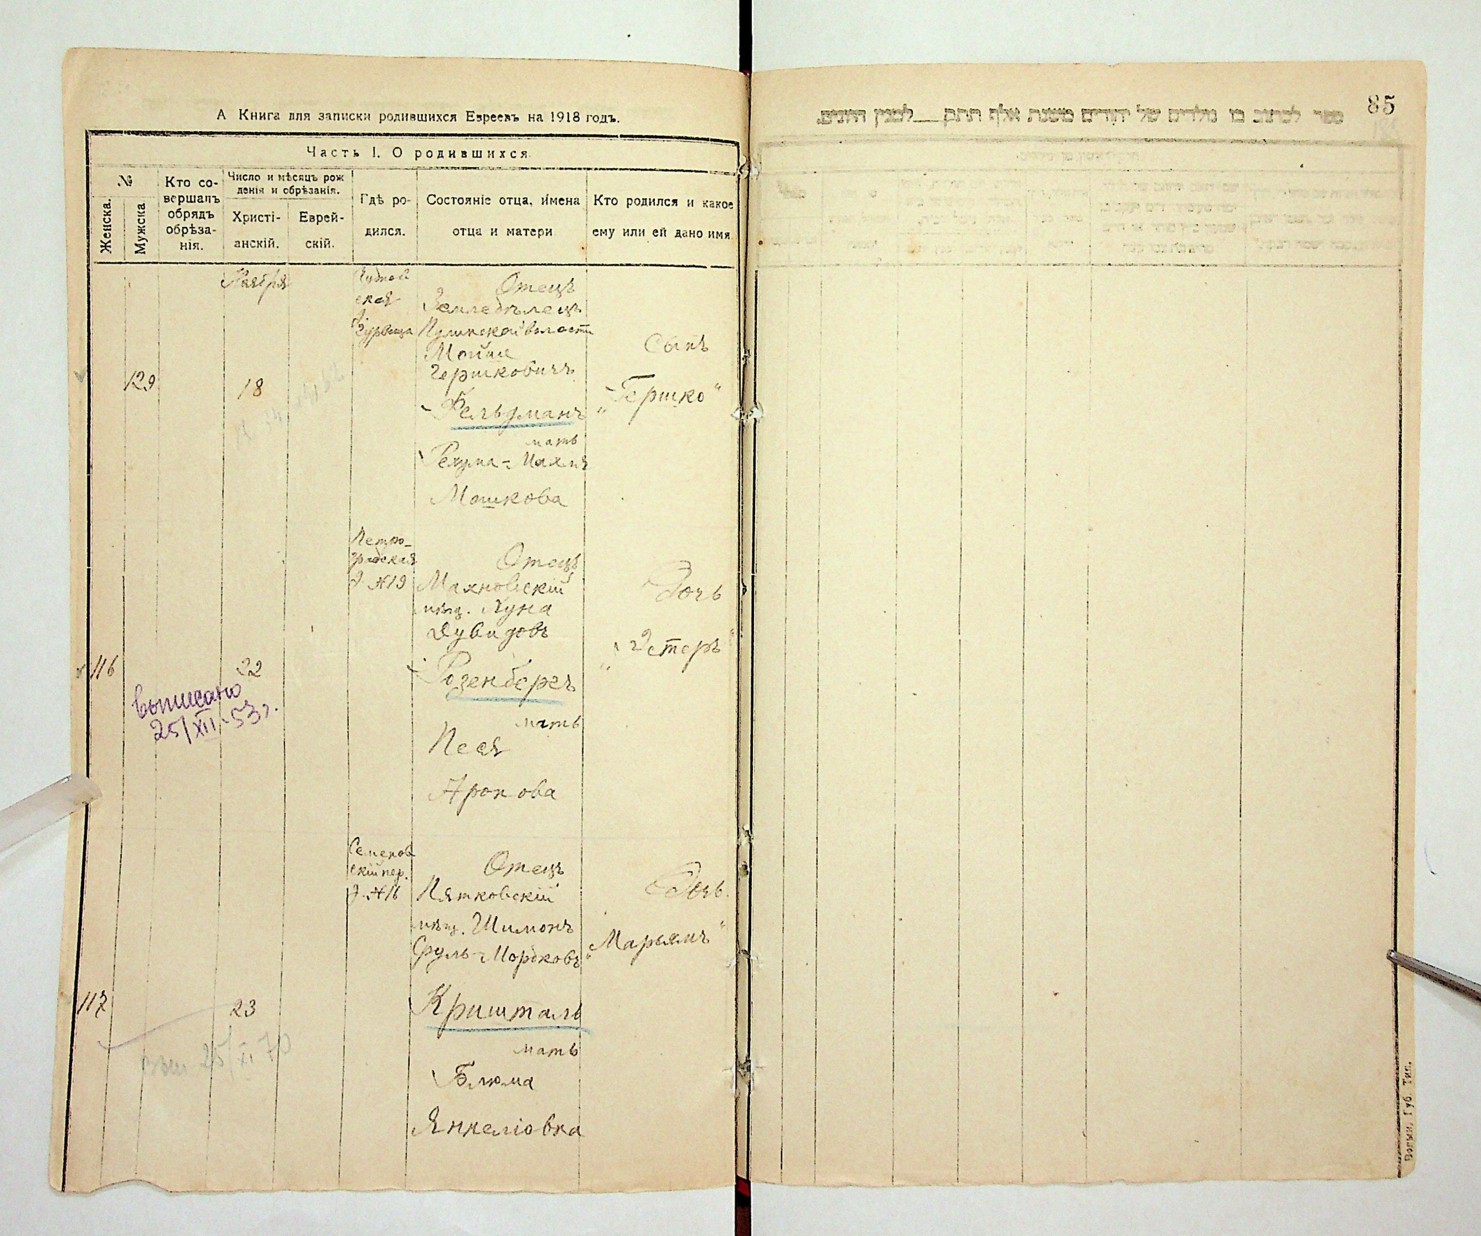 А Книга для записки родившихся Евреевъ на 1918 годъ.
Часть I. О родившихся
№
Женска.
Мужска
Кто со-
вершалъ
обрядъ
обрѣза-
нія.
Число и мѣсяцъ рож
денія и обрѣзанія.
Христі-
анскій.
Еврей-
скій.
Гдѣ ро-
дился.
Состояніе отца, имена
отца и матери
Кто родился и какое
ему или ей дано имя
129
Ноября
18
ская
Отецъ
Земледѣлецъ
волости
Мошка
Гершковичъ
Фельдманъ
мать
Мошкова
Сынъ
„Гершко“
116
22
выписано
25/XII-53г.
Петро-
градская
д. №19
Отецъ
Махновскій
мѣщ. Нуна
Дувидовъ
Розенбергъ
мать
Песя
Аронова
Дочь
„Эстеръ“
117
23
25/XI 70
Семенов
скій пер.
д. №16
Отецъ
Пятковскій
мѣщ. Шимонъ
Сруль-Мордковъ
Кришталь
мать
Блюма
Янкеліовна
Дочь
„Марьямъ“
85
ספר לכתוב בו נולדים של יהודים משנת אלף תתק___ למנין היונים.
Волын. Губ. Тип.